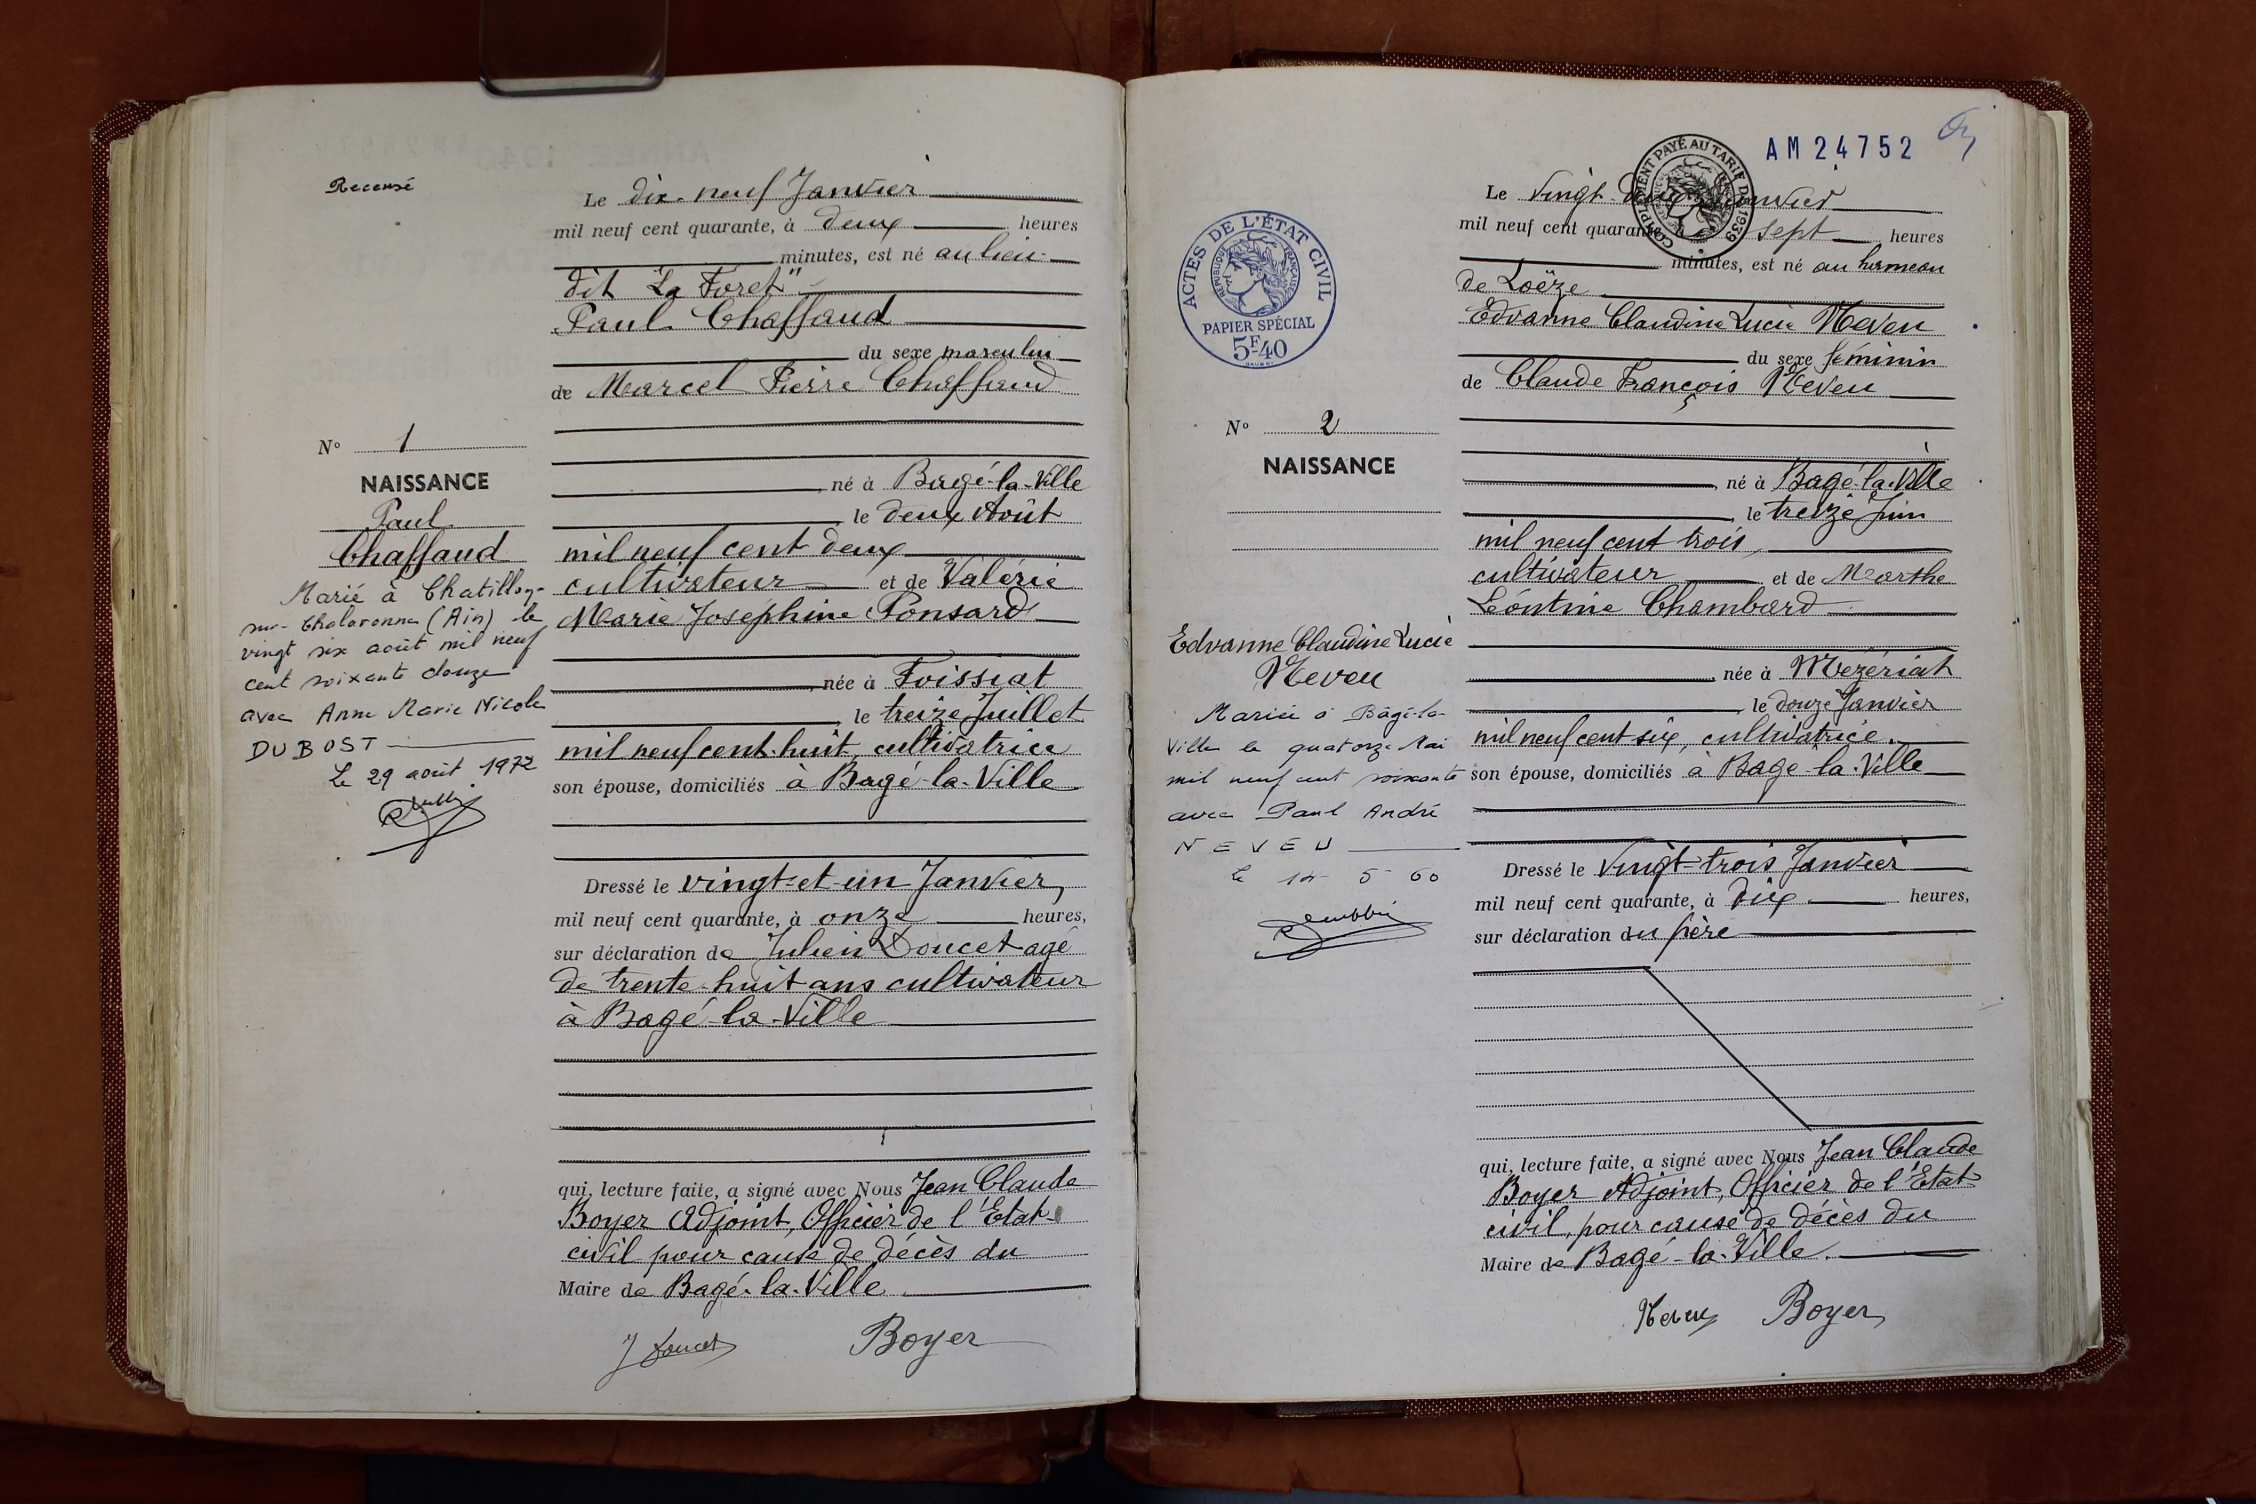 Recensé
Le dix-neuf Janvier
mil neuf cent quarante, à deux heures
minutes, est né au lieu-
dit "La Foret"
Paul Chaffaud
du sexe masculin
de Marcel Pierre Chaffaud
né à Bagé-la-Ville
le deux Août
mil neuf cent deux
cultivateur et de Valérie
Marie Josephine Ponsard
née à Foissiat
le treize Juillet
mil neuf cent huit, cultivatrice
son épouse, domiciliés à Bagé-la-Ville
Dressé le vingt-et-un Janvier,
mil neuf cent quarante, à onze heures,
sur déclaration de Julien Doucet agé
de trente-huit ans cultivateur
à Bagé-la-Ville
qui, lecture faite, a signé avec Nous Jean Claude
Boyer Adjoint, Officier de l'Etat-
civil pour cause de décès du
Maire de Bagé-la-Ville
J Doucet Boyer
No 1
NAISSANCE
Paul
Chaffaud
Marié à Chatillon-
sur-Chalaronne (Ain) le
vingt six août mil neuf
cent soixante douze
avec Anne Marie Nicole
DUBOST
Le 29 août 1972
AM 24752
COMPLEMENT PAYÉ AU TARIF DE 1939
ACTES DE L'ÉTAT CIVIL
REPUBLIQUE FRANÇAISE
PAPIER SPÉCIAL
5F40
Le Vingt-deux Janvier
mil neuf cent quarante sept heures
minutes, est né au hameau
de Loëze
Edvanne Claudine Lucie Neveu
du sexe féminin
de Claude François Neveu
né à Bagé-la-Ville
le treize Juin
mil neuf cent trois,
cultivateur et de Marthe
Léontine Chambard
née à Mézériat
le douze Janvier
mil neuf cent six, cultivatrice.
son épouse, domiciliés à Bagé-la-Ville
Dressé le Vingt-trois Janvier
mil neuf cent quarante, à dix heures,
sur déclaration du père
qui, lecture faite, a signé avec Nous Jean Claude
Boyer Adjoint, Officier de l'Etat
civil, pour cause de décès du
Maire de Bagé-la-Ville.
Neveu Boyer
No 2
NAISSANCE
Edvanne Claudine Lucie
Neveu
Mariée à Bâgé-la-
Ville le quatorze Mai
mil neuf cent soixante
avec Paul André
NEVEU
le 14-5-60